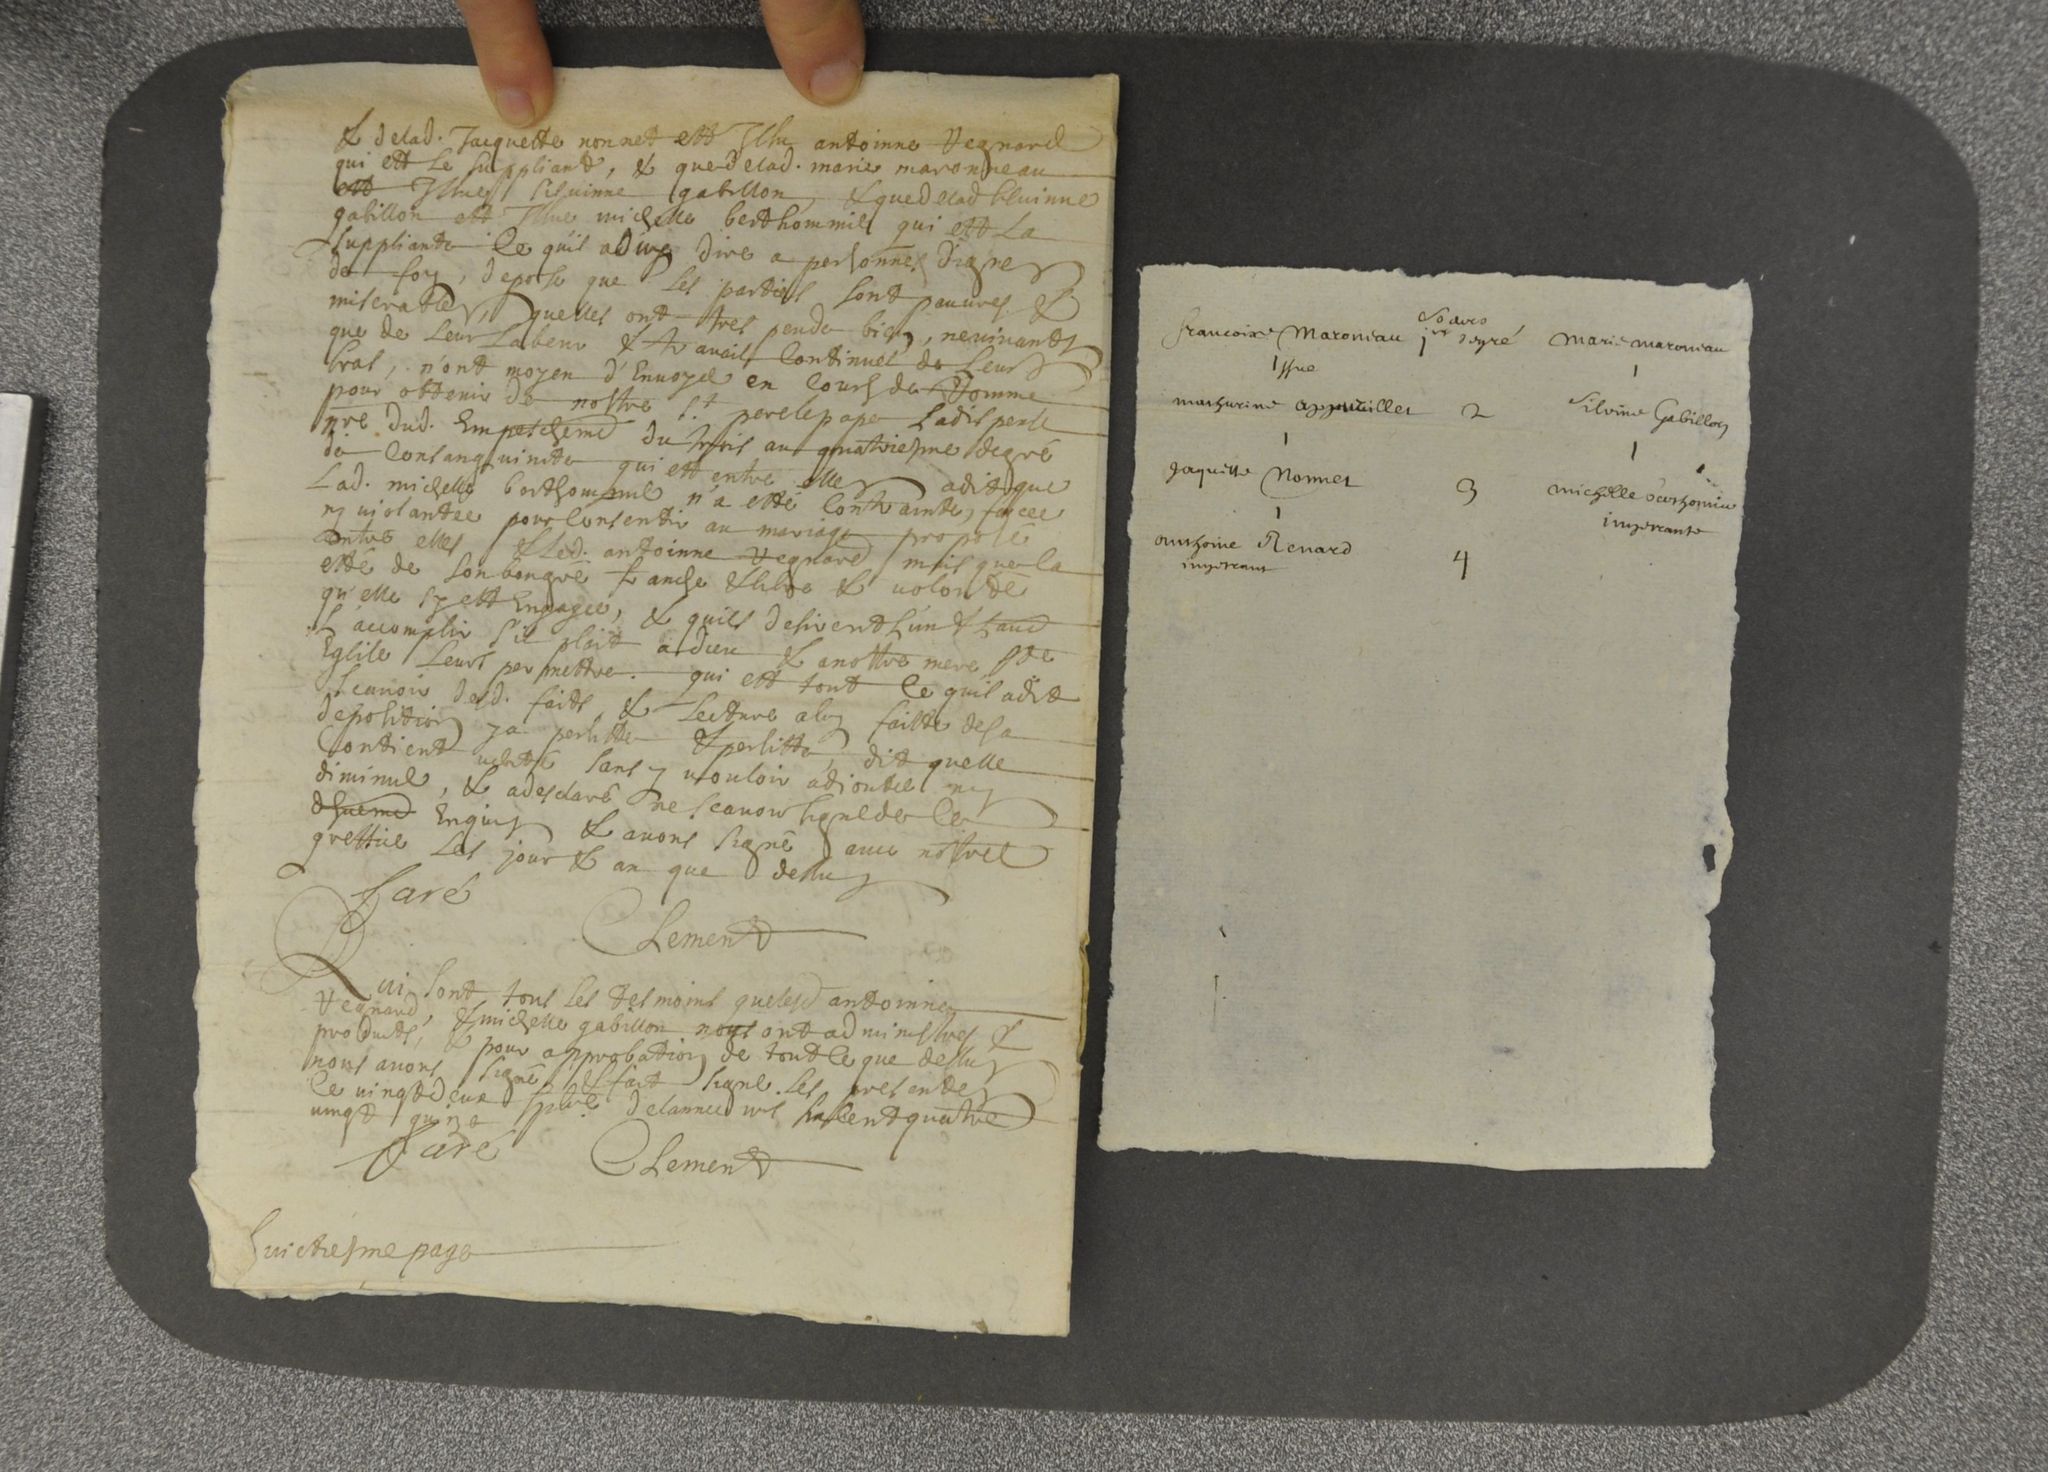 & delad. Jacquette nonnet est Issu antoinne Regnard
qui est Le suppliant, & que delad. marie maronneau
est Issue silvinne gabillon, & que delad silvinne
gabillon est Issue michelle berthommié qui est La
suppliante Ce quil a dire a personnes dignes
de foy, depose que Les parties sont pauvres &
miserables, quelles ont tres peude bien, nevivants
que de Leur Labeur & travail Continuel de Leurs
bras, n'ont moyen d'Envoyer en Cours de Romme
pour obtenir de nostre St pere le pape Ladispense
dud. Empeschemt du trois au quatriesme degré
de Consanguinité qui est entre elles adit que
Lad. michelle berthommié n'a esté Contrainte, forcée
ny violantée pour Consentir au mariage proposé
entre elles & Led. antoinne Regnard mais que la
esté de son bongré franche & libre & volonté
qu'elle sy est Engagée, & quils desirent L'un & L'aut
L'accomplir s'il plait a dieu & a nostre mere Ste
Eglise Leurs permettre. qui est tout Ce quil adit
scavoir desd. faits, & Lecture aluy faitte desa
deposition ya persisté & persiste, dit quelle
Contient verité sans y vouloir adjouter ny
diminuer, & adesclaré ne scavoir signer de Ce
Enquis & avons signé avec nostre
greffier Les jour & an que dessus
Faré
Clement
Qui sont tous Les tesmoins quelesd antoinne
Regnard, & michelle gabillon nous ont administrés &
produits, & pour approbation de tout Ce que dessus
nous avons signé & fait signer Les presentes
Ce vingtdeux delannee mil six Cent quatre
vingt quinze
Faré
Clement
huictiesme page
francoise Maroneau soeurs marie maroneau
1er degré
Issue
mathurine appercillet 2 Silvine Gabillon
Jaquette Nonnet 3 michelle berthomier
impetrante
anthoine Renard 4
impetrant